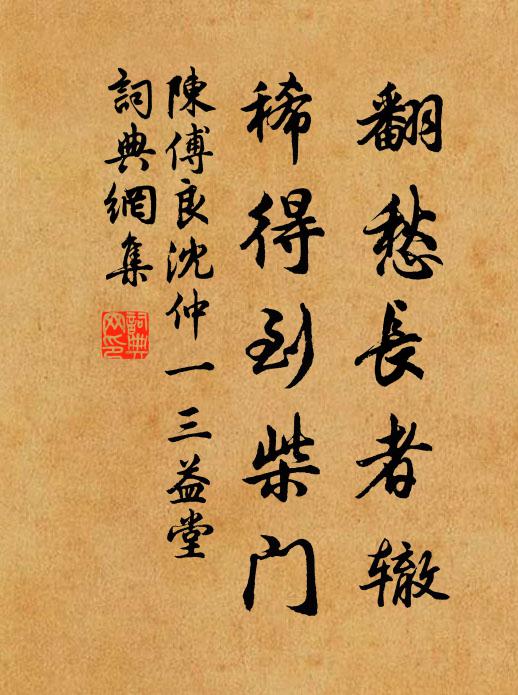 翻愁長者辙
稀得到柴门
陳傅良沈仲一三益堂
詞典網集
詞典网印